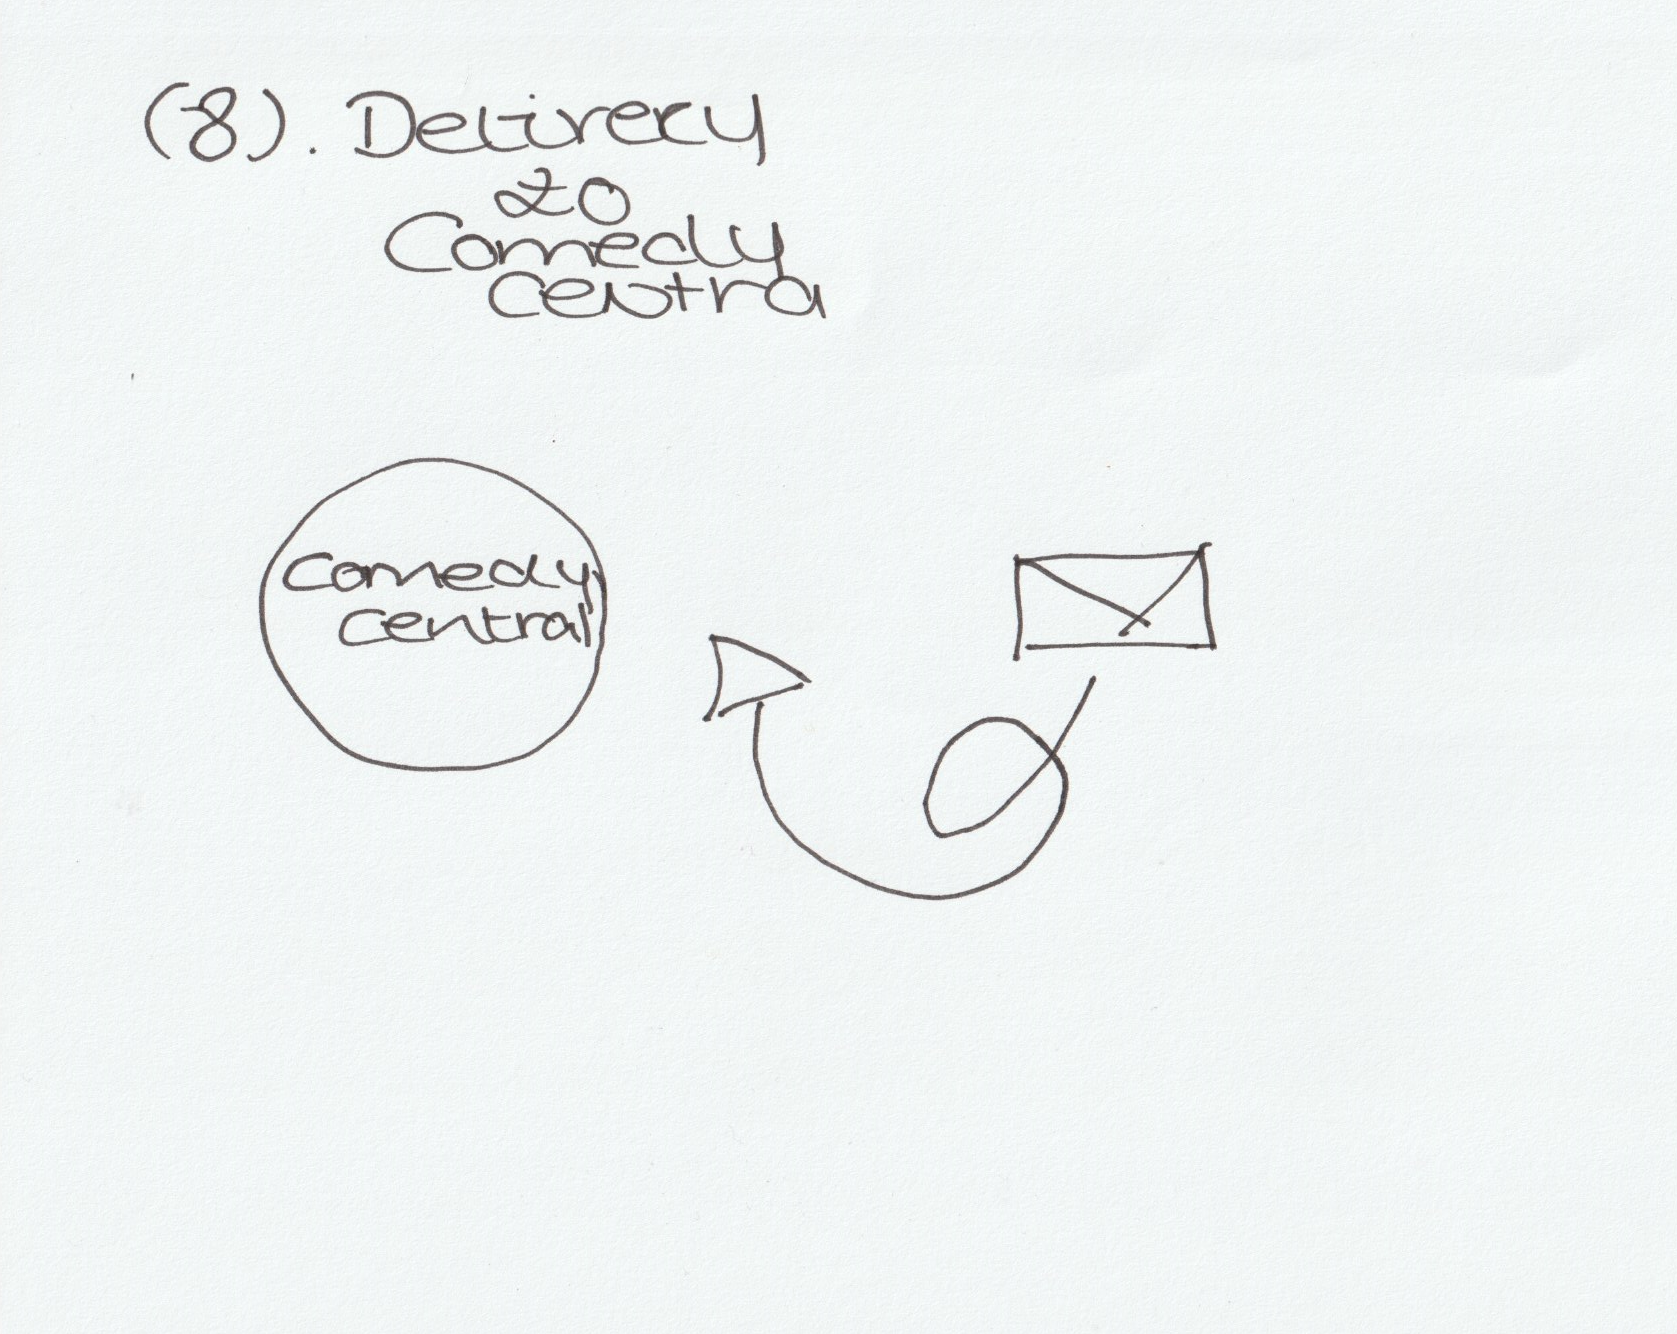 (8). Delivery
to
Comedy
Centra
Comedy
Central